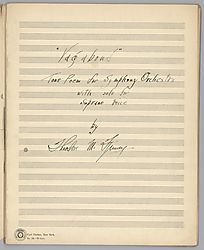 "Vagabond"
Tone Poem for Symphony Orchestra
with solo for
Soprano voice
by
M.
Carl Fischer, New York.